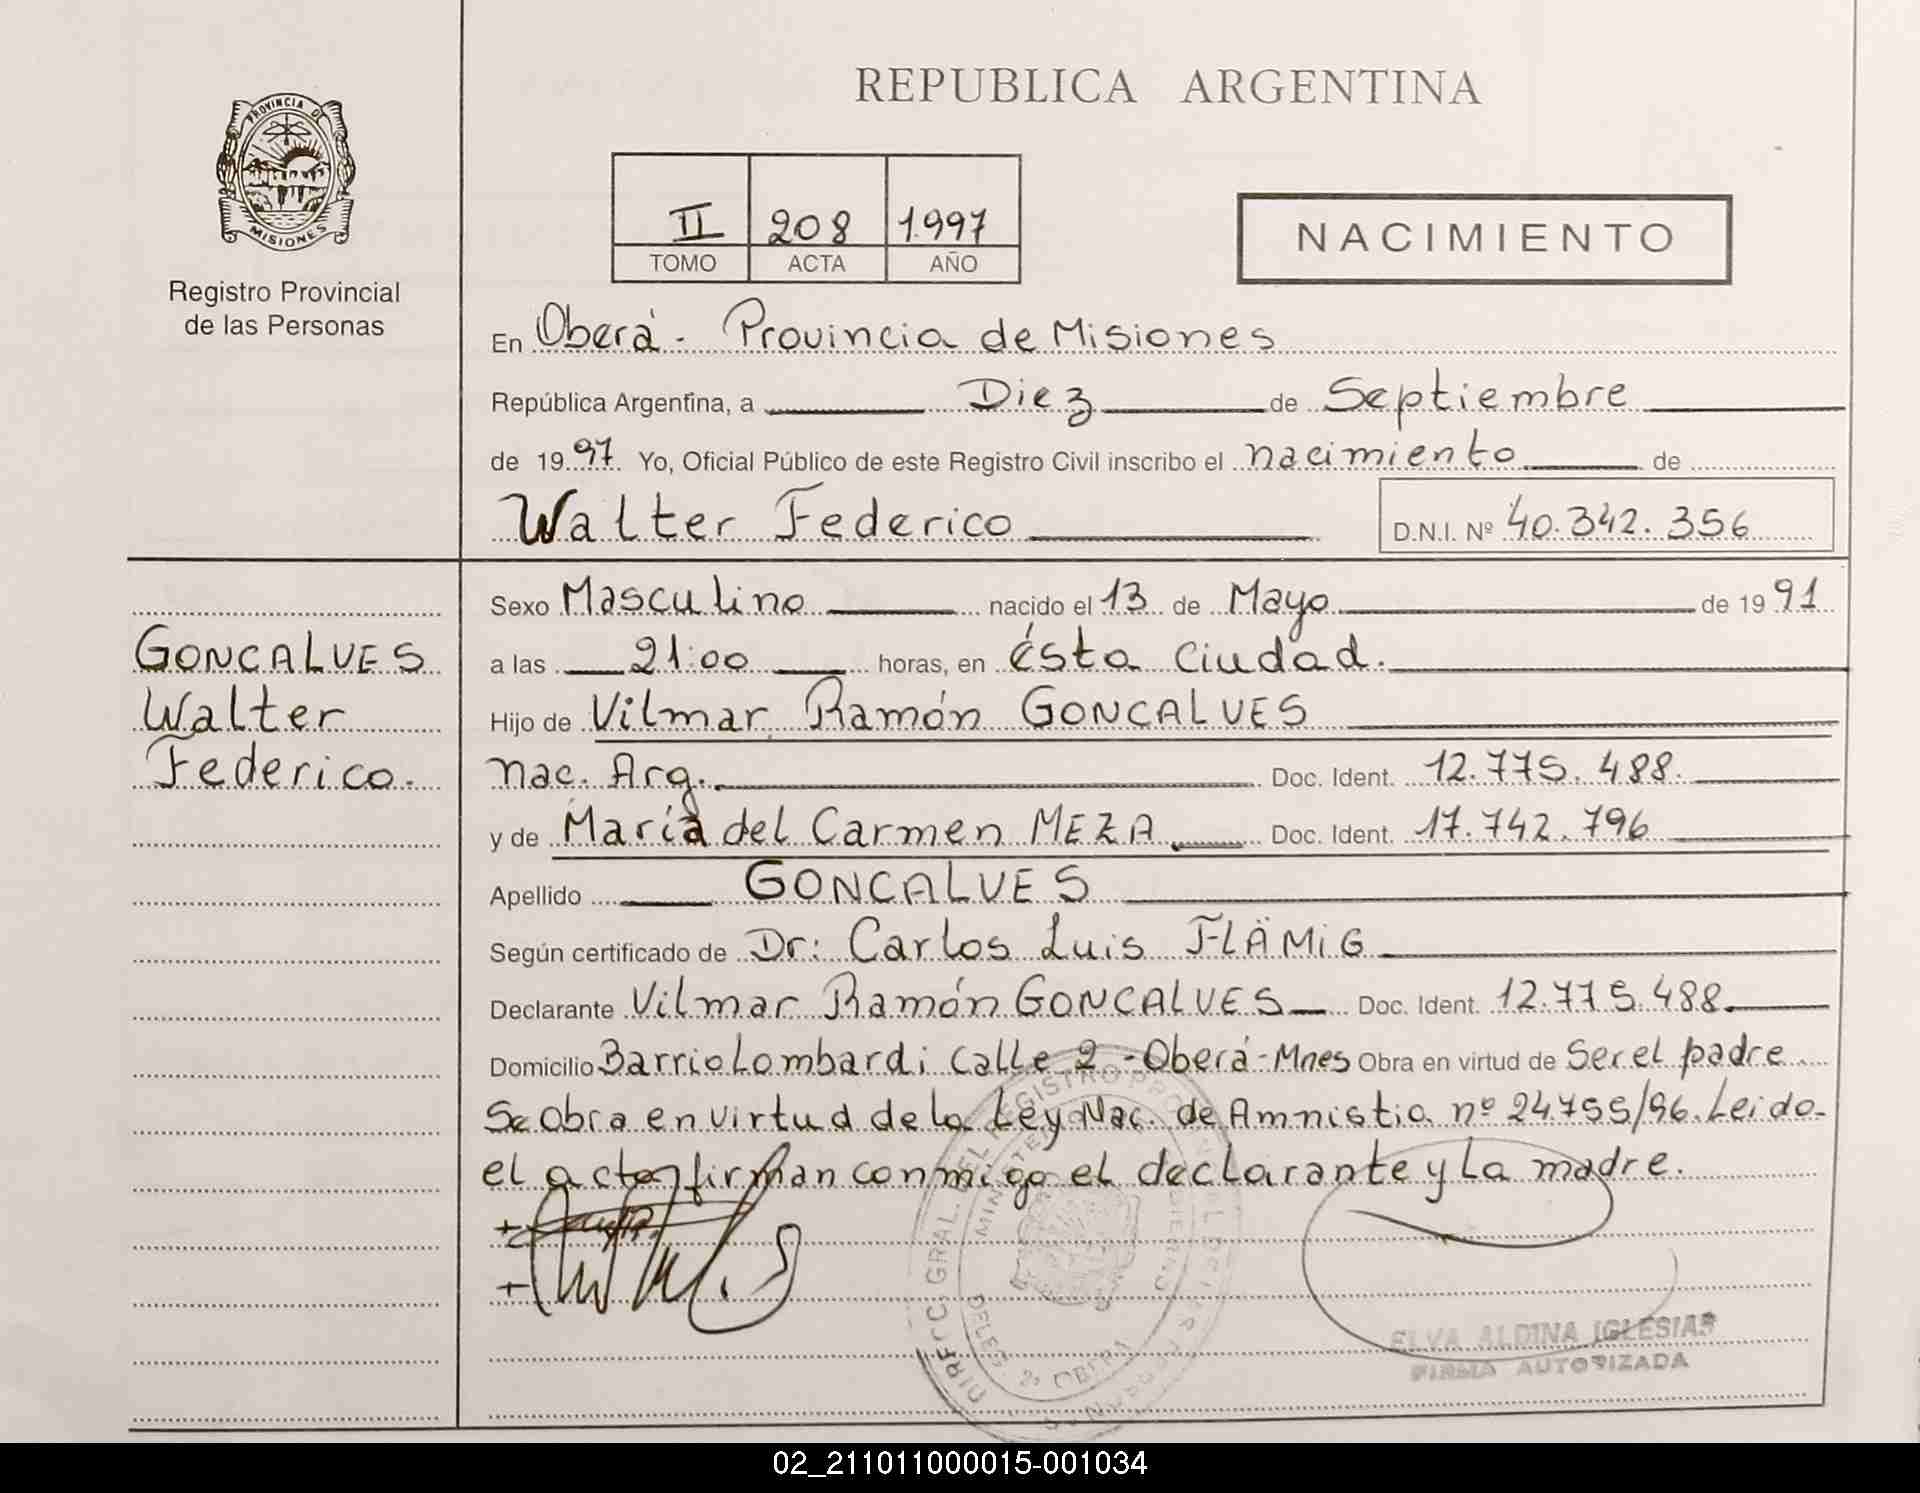 REPUBLICA ARGENTINA
PROVINCIA DE
MISIONES
Registro Provincial
de las Personas
II 208 1.997
TOMO ACTA AÑO
NACIMIENTO
En Oberá - Provincia de Misiones
República Argentina, a Diez de Septiembre
de 1997. Yo, Oficial Público de este Registro Civil inscribo el nacimiento de
Walter Federico D.N.I. Nº 40.342.356
GONCALVES
Walter
Federico.
Sexo Masculino nacido el 13 de Mayo de 1991
a las 21:00 horas, en ésta ciudad.
Hijo de Vilmar Ramón GONCALVES
nac. Arg. Doc. Ident. 12.775.488.
y de María del Carmen MEZA Doc. Ident. 17.742.796
Apellido GONCALVES
Según certificado de Dr: Carlos Luis FLÄMIG
Declarante Vilmar Ramón GONCALVES Doc. Ident. 12.775.488.
Domicilio Barrio Lombardi calle 2 - Oberá - Mnes Obra en virtud de Ser el padre
Se obra en virtud de la Ley Nac. de Amnistia nº 24.755/96. Leido
el acta firman conmigo el declarante y la madre.
DIREC. GRAL. DEL REGISTRO
DELEG. 2ª OBERA
ELVA ALDINA IGLESIAS
FIRMA AUTORIZADA
02_211011000015-001034